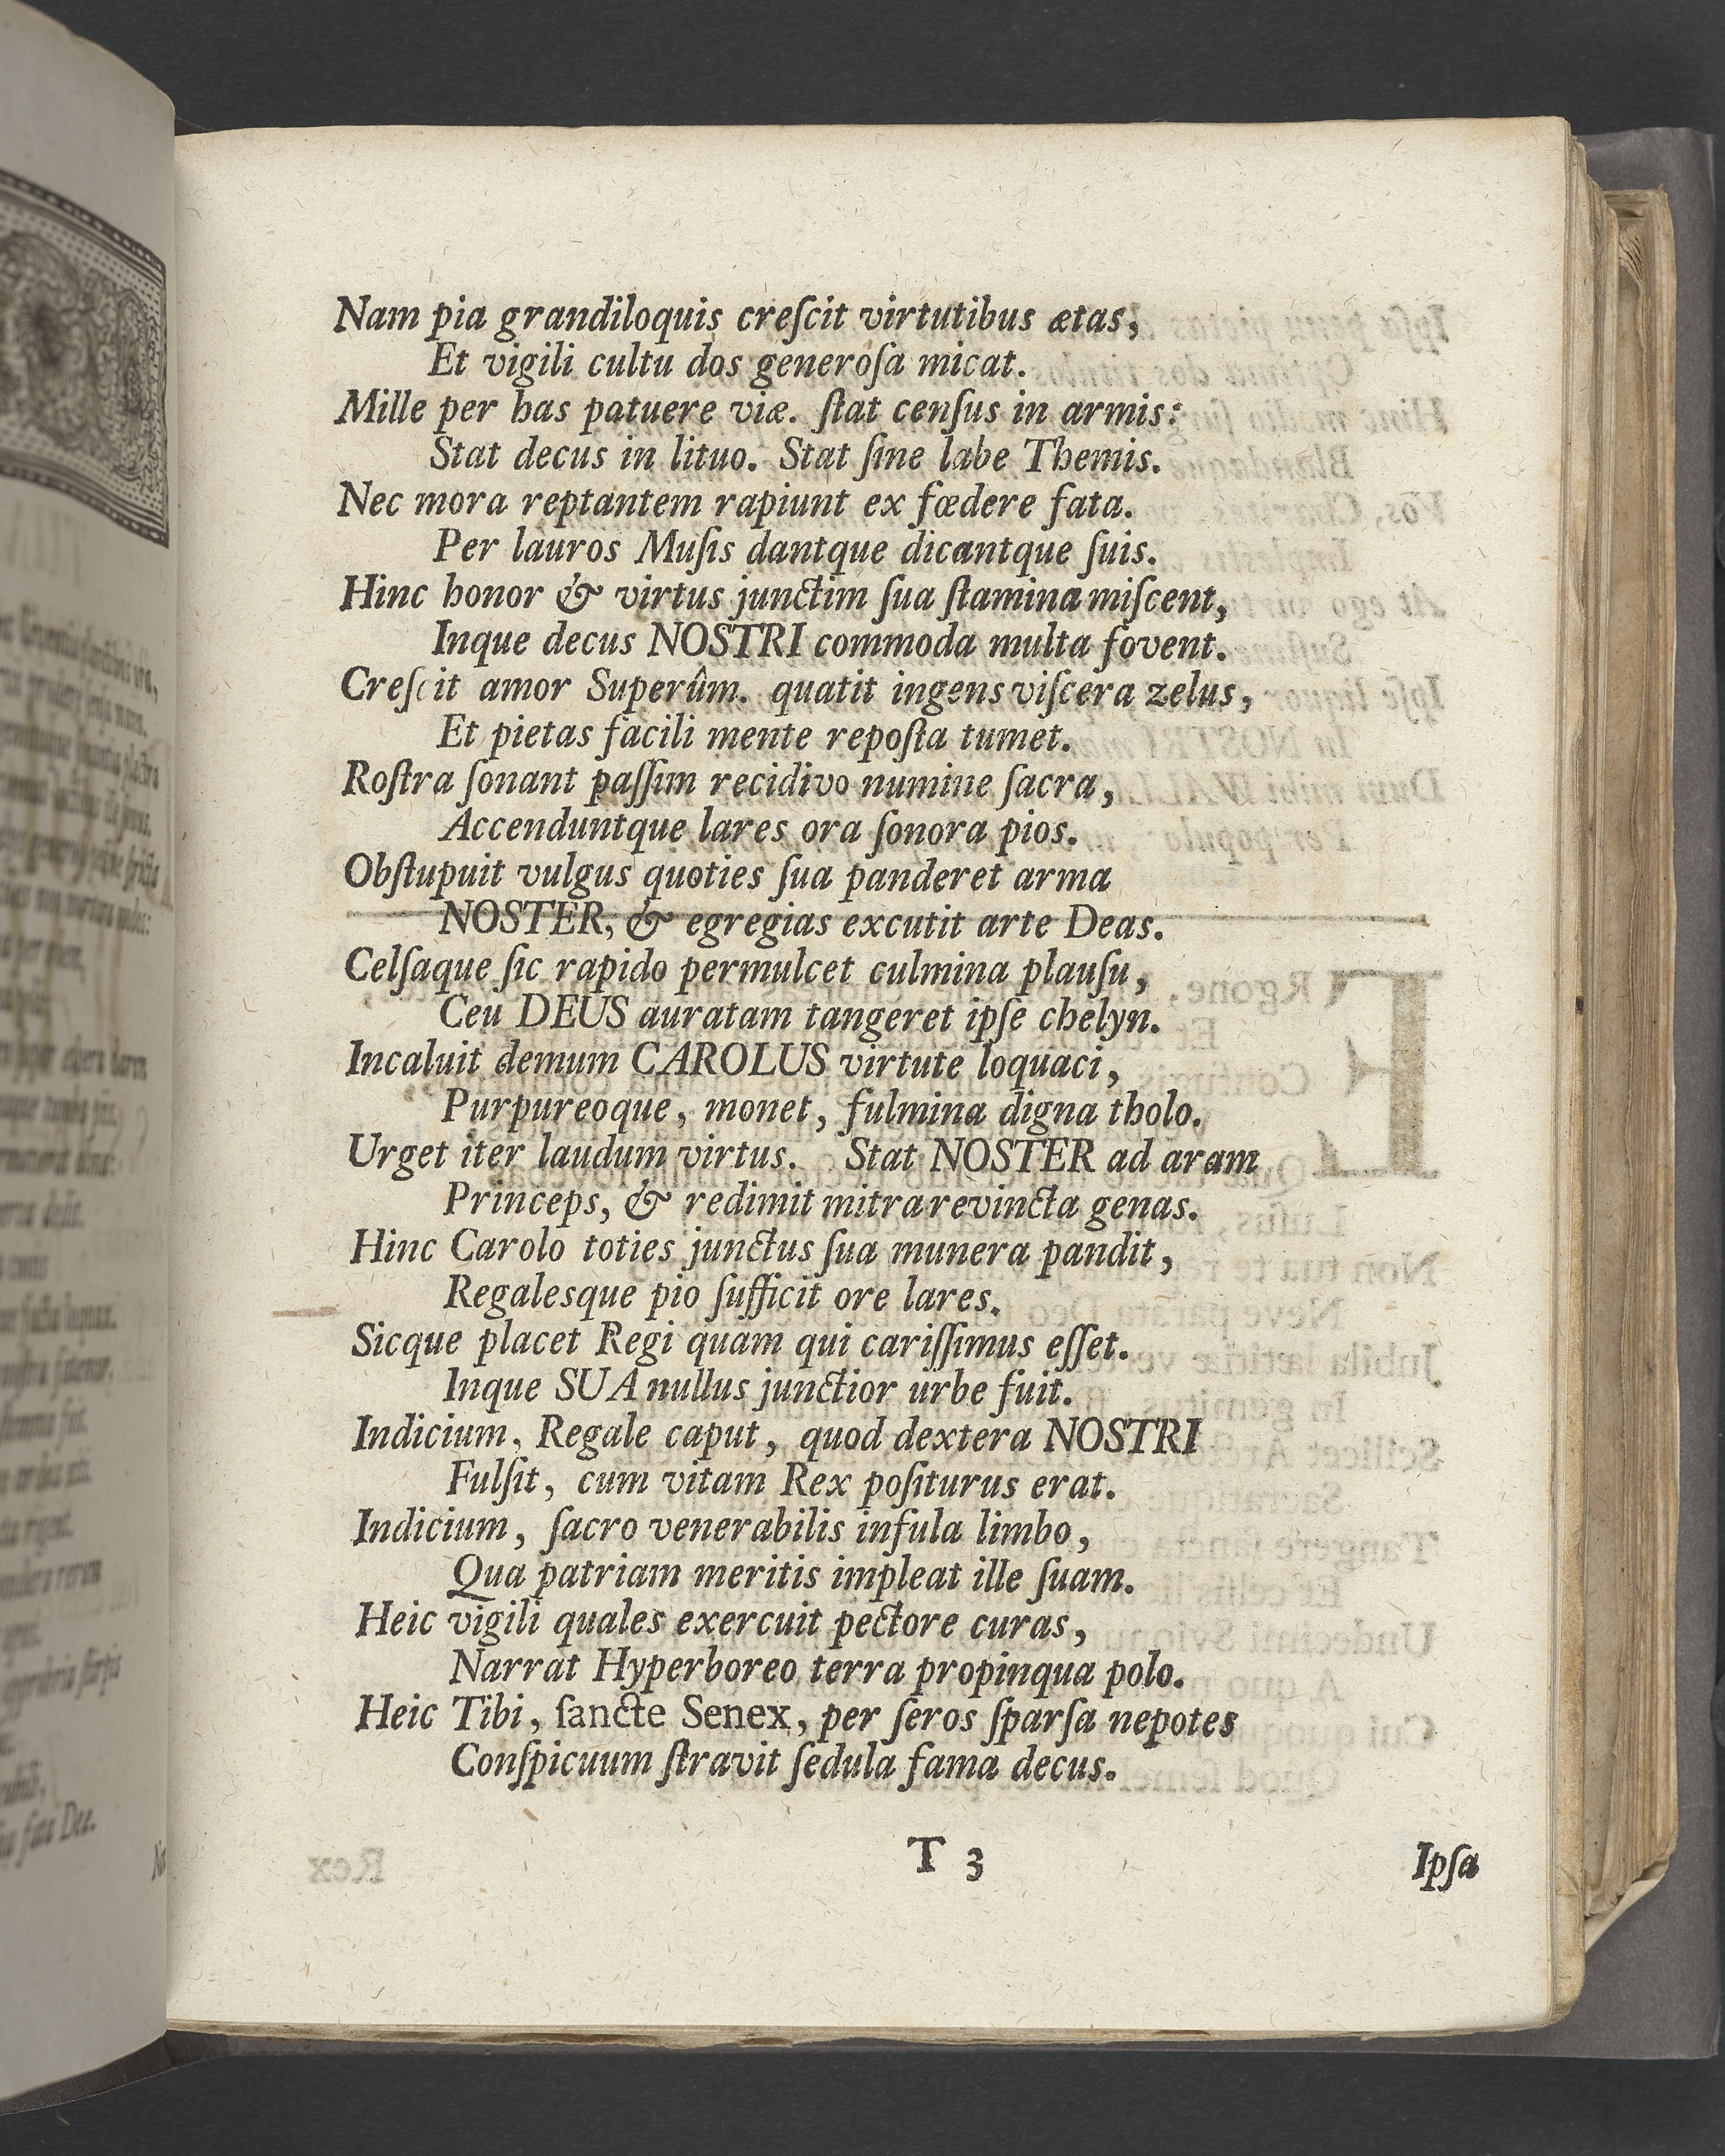 Nam pia grandiloquis creſcit virtutibus ætas,
Et vigili cultu dos generoſa micat.
Mille per has patuere viæ. ſtat cenſus in armis:
Stat decus in lituo. Stat ſine labe Themis.
Nec mora reptantem rapiunt ex fœdere fata.
Per lauros Muſis dantque dicantque ſuis.
Hinc honor & virtus junctim ſua ſtamina miſcent,
Inque decus NOSTRI commoda multa fovent.
Creſcit amor Superûm. quatit ingens viſcera zelus,
Et pietas facili mente repoſta tumet.
Roſtra ſonant paſſim recidivo numine ſacra,
Accenduntque lares ora ſonora pios.
Obſtupuit vulgus quoties ſua panderet arma
NOSTER, & egregias excutit arte Deas.
Celſaque ſic rapido permulcet culmina plauſu,
Ceu DEUS auratam tangeret ipſe chelyn.
Incaluit demum CAROLUS virtute loquaci,
Purpureoque, monet, fulmina digna tholo.
Urget iter laudum virtus. Stat NOSTER ad aram
Princeps, & redimit mitra revincta genas.
Hinc Carolo toties junctus ſua munera pandit,
Regalesque pio ſufficit ore lares.
Sicque placet Regi quam qui cariſſimus eſſet.
Inque SUA nullus junctior urbe fuit.
Indicium, Regale caput, quod dextera NOSTRI
Fulſit, cum vitam Rex poſiturus erat.
Indicium, ſacro venerabilis infula limbo,
Qua patriam meritis impleat ille ſuam.
Heic vigili quales exercuit pectore curas,
Narrat Hyperboreo terra propinqua polo.
Heic Tibi, ſancte Senex, per ſeros ſparſa nepotes
Conſpicuum ſtravit ſedula fama decus.
T 3
Ipſa